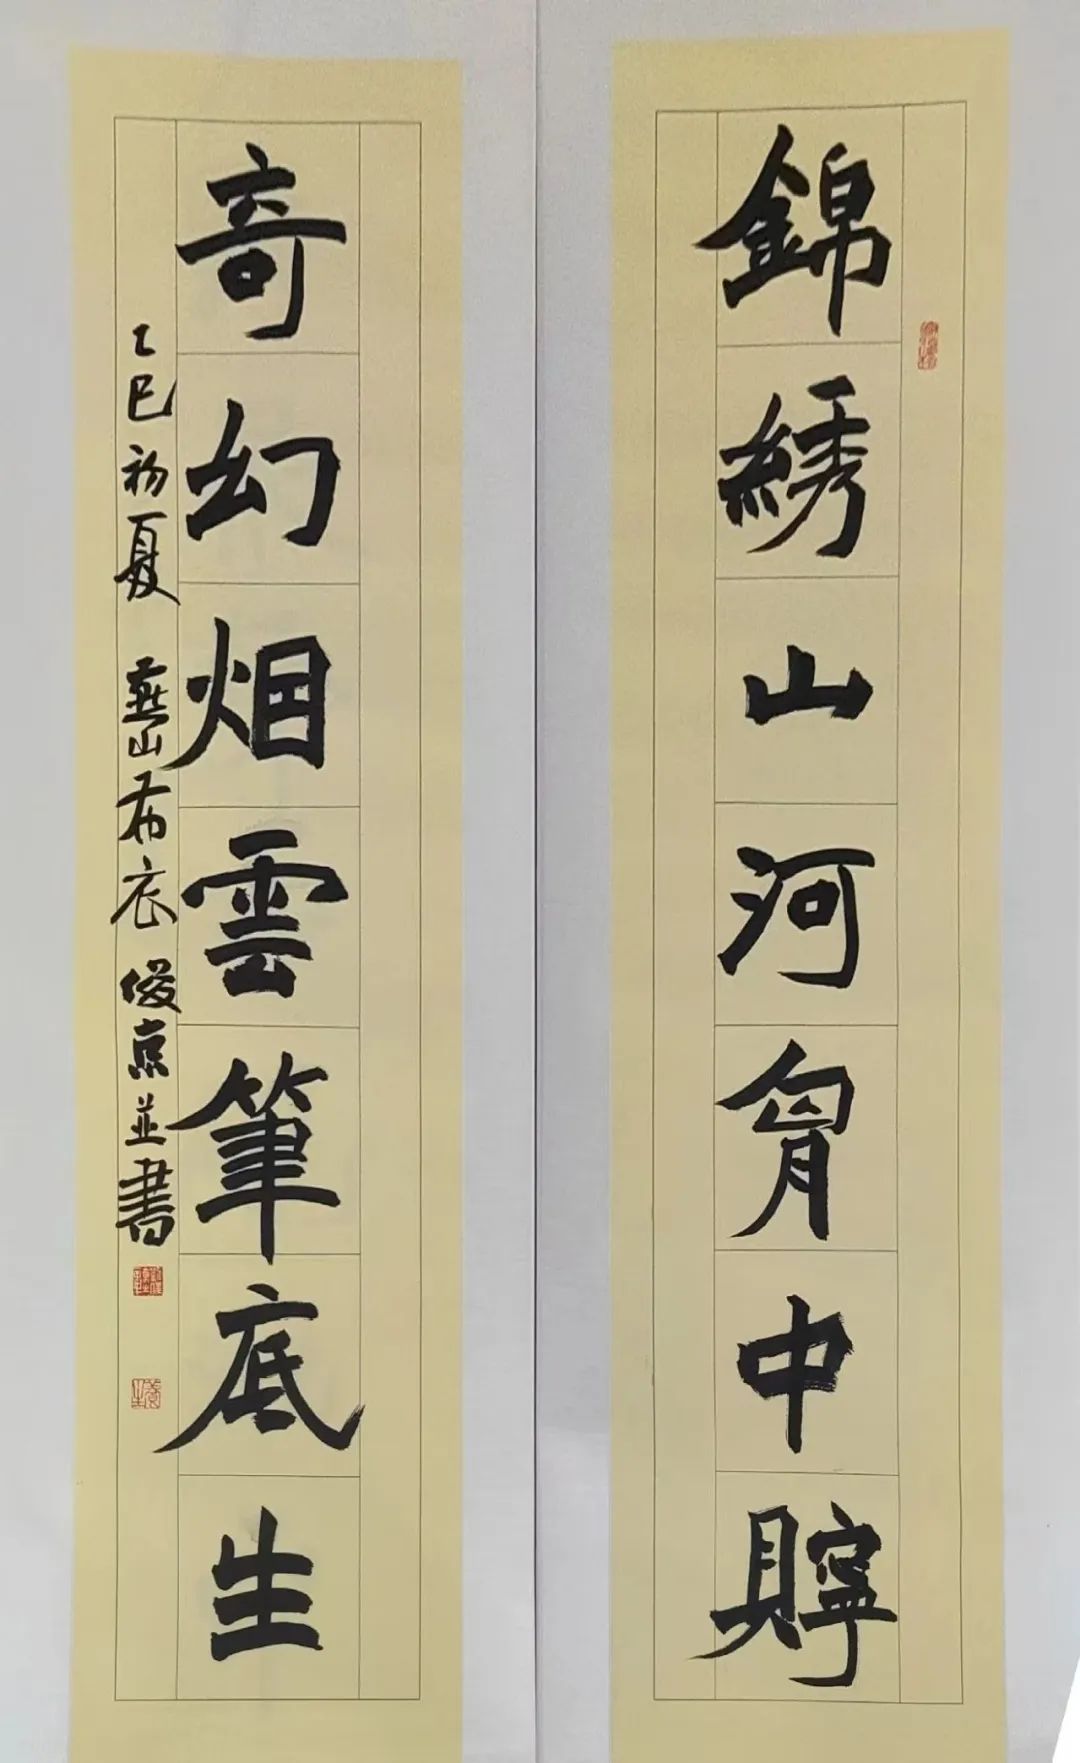 錦綉山河胷中貯
奇幻烟雲筆底生
乙巳初夏燕山布衣俊京並書